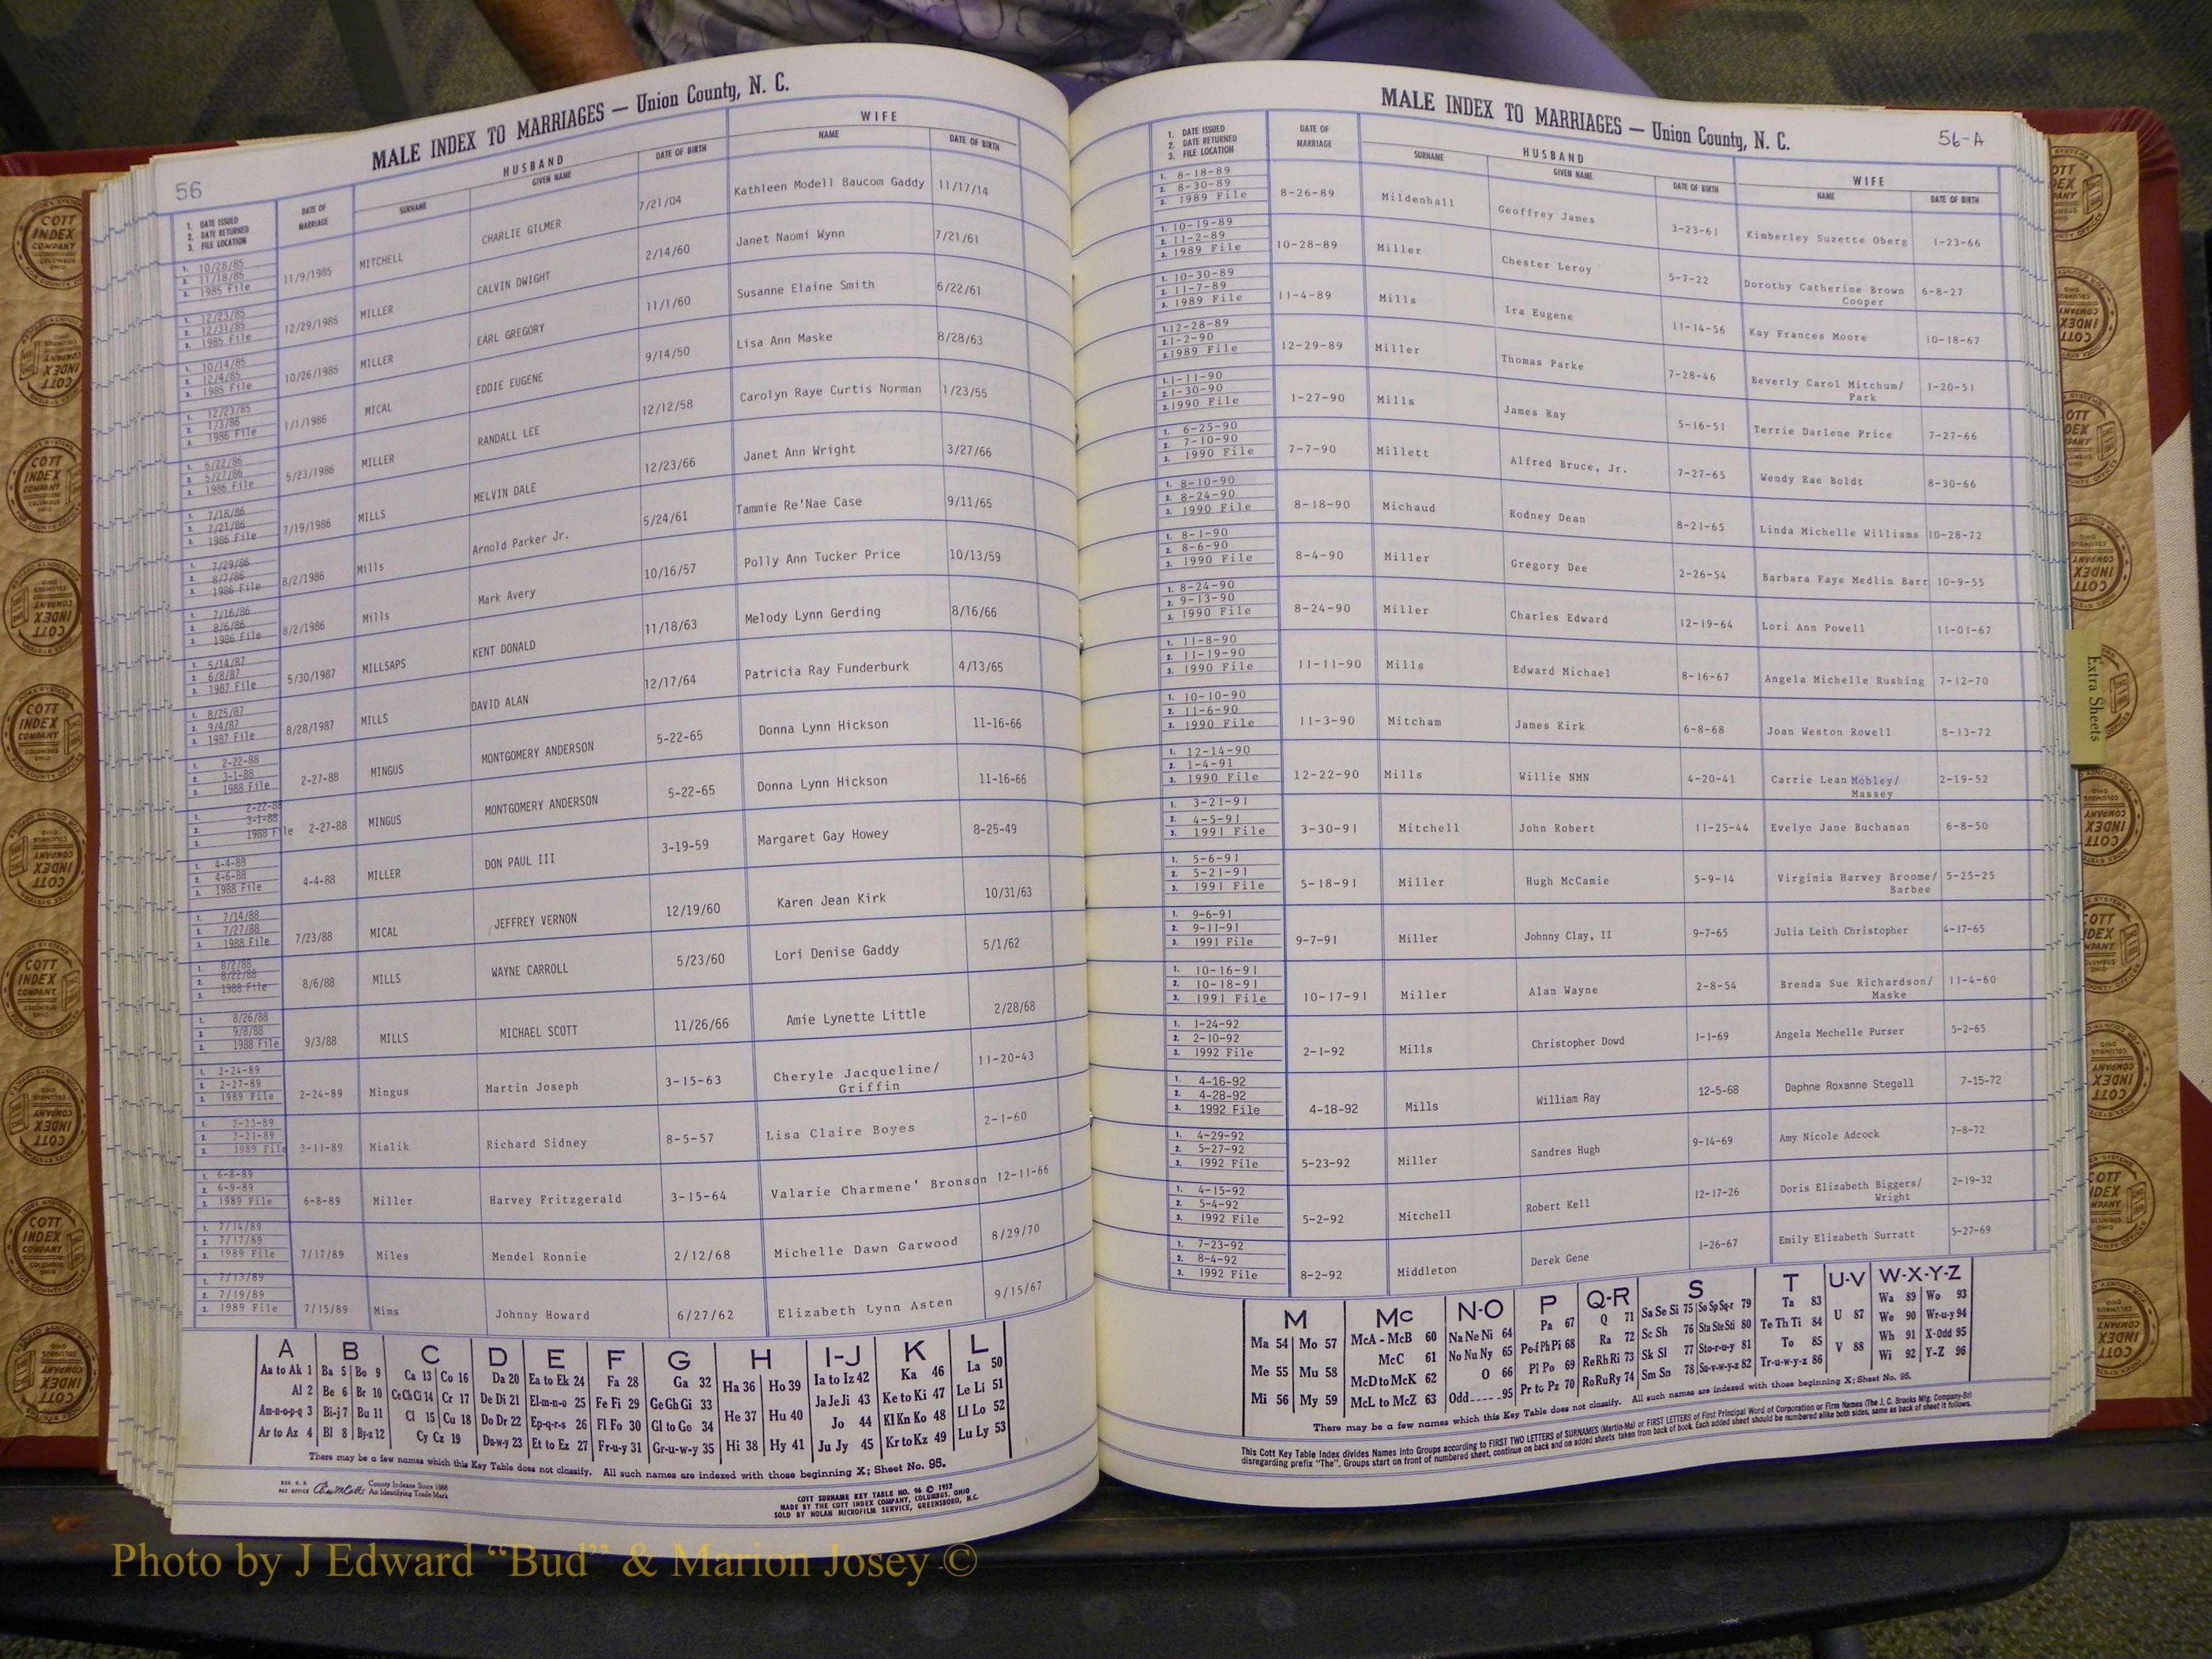 MALE INDEX TO MARRIAGES — Union County, N. C.
56
1. DATE ISSUED
2. DATE RETURNED
3. FILE LOCATION
DATE OF MARRIAGE
HUSBAND
SURNAME GIVEN NAME DATE OF BIRTH
WIFE
NAME DATE OF BIRTH
1. 10/28/85 2. 11/18/85 3. 1985 File 11/9/1985 MITCHELL CHARLIE GILMER 7/21/04 Kathleen Modell Baucom Gaddy 11/17/14
1. 12/23/85 2. 12/31/85 3. 1985 File 12/29/1985 MILLER CALVIN DWIGHT 2/14/60 Janet Naomi Wynn 7/21/61
1. 10/14/85 2. 12/4/85 3. 1985 File 10/26/1985 MILLER EARL GREGORY 11/1/60 Susanne Elaine Smith 6/22/61
1. 12/23/85 2. 1/3/86 3. 1986 File 1/1/1986 MICAL EDDIE EUGENE 9/14/50 Lisa Ann Maske 8/28/63
1. 5/22/86 2. 5/27/86 3. 1986 File 5/23/1986 MILLER RANDALL LEE 12/12/58 Carolyn Raye Curtis Norman 1/23/55
1. 7/18/86 2. 7/21/86 3. 1986 File 7/19/1986 MILLS MELVIN DALE 12/23/66 Janet Ann Wright 3/27/66
1. 7/29/86 2. 8/7/86 3. 1986 File 8/2/1986 Mills Arnold Parker Jr. 5/24/61 Tammie Re'Nae Case 9/11/65
1. 7/16/86 2. 8/6/86 3. 1986 File 8/2/1986 Mills Mark Avery 10/16/57 Polly Ann Tucker Price 10/13/59
1. 5/14/87 2. 6/8/87 3. 1987 File 5/30/1987 MILLSAPS KENT DONALD 11/18/63 Melody Lynn Gerding 8/16/66
1. 8/25/87 2. 9/4/87 3. 1987 File 8/28/1987 MILLS DAVID ALAN 12/17/64 Patricia Ray Funderburk 4/13/65
1. 2-22-88 2. 3-1-88 3. 1988 File 2-27-88 MINGUS MONTGOMERY ANDERSON 5-22-65 Donna Lynn Hickson 11-16-66
1. 2-22-88 2. 3-1-88 3. 1988 File 2-27-88 MINGUS MONTGOMERY ANDERSON 5-22-65 Donna Lynn Hickson 11-16-66
1. 4-4-88 2. 4-6-88 3. 1988 File 4-4-88 MILLER DON PAUL III 3-19-59 Margaret Gay Howey 8-25-49
1. 7/14/88 2. 7/27/88 3. 1988 File 7/23/88 MICAL JEFFREY VERNON 12/19/60 Karen Jean Kirk 10/31/63
1. 8/2/88 2. 8/22/88 3. 1988 File 8/6/88 MILLS WAYNE CARROLL 5/23/60 Lori Denise Gaddy 5/1/62
1. 8/26/88 2. 9/8/88 3. 1988 File 9/3/88 MILLS MICHAEL SCOTT 11/26/66 Amie Lynette Little 2/28/68
1. 2-24-89 2. 2-27-89 3. 1989 File 2-24-89 Mingus Martin Joseph 3-15-63 Cheryle Jacqueline/ Griffin 11-20-43
1. 2-23-89 2. 3-21-89 3. 1989 File 3-11-89 Mialik Richard Sidney 8-5-57 Lisa Claire Boyes 2-1-60
1. 6-8-89 2. 6-9-89 3. 1989 File 6-8-89 Miller Harvey Fritzgerald 3-15-64 Valarie Charmene' Bronson 12-11-66
1. 7/14/89 2. 7/17/89 3. 1989 File 7/17/89 Miles Mendel Ronnie 2/12/68 Michelle Dawn Garwood 8/29/70
1. 7/13/89 2. 7/19/89 3. 1989 File 7/15/89 Mims Johnny Howard 6/27/62 Elizabeth Lynn Asten 9/15/67
A B C D E F G H I-J K L
Aa to Ak 1 Ba 5 Bo 9 Ca 13 Co 16 Da 20 Ea to Ek 24 Fa 28 Ga 32 Ha 36 Ho 39 Ia to Iz 42 Ka 46 La 50
Al 2 Be 6 Br 10 Ce Ch Ci 14 Cr 17 De Di 21 El-m-n-o 25 Fe Fi 29 Ge Gh Gi 33 He 37 Hu 40 Ja Je Ji 43 Ke to Ki 47 Le Li 51
Am-n-o-p-q 3 Bi-j 7 Bu 11 Cl 15 Cu 18 Do Dr 22 Ep-q-r-s 26 Fl Fo 30 Gl to Go 34 Hi 38 Hy 41 Jo 44 Kl Kn Ko 48 Ll Lo 52
Ar to Az 4 Bl 8 By-z 12 Cy Cz 19 Du-w-y 23 Et to Ez 27 Fr-u-y 31 Gr-u-w-y 35 Ju Jy 45 Kr to Kz 49 Lu Ly 53
There may be a few names which this Key Table does not classify. All such names are indexed with those beginning X; Sheet No. 95.
County Indexes Since 1888
An Identifying Trade Mark
COTT SURNAME KEY TABLE NO. 96 © 1952
MADE BY THE COTT INDEX COMPANY, COLUMBUS, OHIO
SOLD BY NOLAN MICROFILM SERVICE, GREENSBORO, N.C.
MALE INDEX TO MARRIAGES — Union County, N. C.
56-A
1. DATE ISSUED
2. DATE RETURNED
3. FILE LOCATION
DATE OF MARRIAGE
HUSBAND
SURNAME GIVEN NAME DATE OF BIRTH
WIFE
NAME DATE OF BIRTH
1. 8-18-89 2. 8-30-89 3. 1989 File 8-26-89 Mildenhall Geoffrey James 3-23-61 Kimberley Suzette Oberg 1-23-66
1. 10-19-89 2. 11-2-89 3. 1989 File 10-28-89 Miller Chester Leroy 5-7-22 Dorothy Catherine Brown Cooper 6-8-27
1. 10-30-89 2. 11-7-89 3. 1989 File 11-4-89 Mills Ira Eugene 11-14-56 Kay Frances Moore 10-18-67
1. 12-28-89 2. 1-2-90 3. 1989 File 12-29-89 Miller Thomas Parke 7-28-46 Beverly Carol Mitchum/ Park 1-20-51
1. 1-11-90 2. 1-30-90 3. 1990 File 1-27-90 Mills James Ray 5-16-51 Terrie Darlene Price 7-27-66
1. 6-25-90 2. 7-10-90 3. 1990 File 7-7-90 Millett Alfred Bruce, Jr. 7-27-65 Wendy Rae Boldt 8-30-66
1. 8-10-90 2. 8-24-90 3. 1990 File 8-18-90 Michaud Rodney Dean 8-21-65 Linda Michelle Williams 10-28-72
1. 8-1-90 2. 8-6-90 3. 1990 File 8-4-90 Miller Gregory Dee 2-26-54 Barbara Faye Medlin Barr 10-9-55
1. 8-24-90 2. 9-13-90 3. 1990 File 8-24-90 Miller Charles Edward 12-19-64 Lori Ann Powell 11-01-67
1. 11-8-90 2. 11-19-90 3. 1990 File 11-11-90 Mills Edward Michael 8-16-67 Angela Michelle Rushing 7-12-70
1. 10-10-90 2. 11-6-90 3. 1990 File 11-3-90 Mitcham James Kirk 6-8-68 Joan Weston Rowell 8-13-72
1. 12-14-90 2. 1-4-91 3. 1990 File 12-22-90 Mills Willie NMN 4-20-41 Carrie Lean Mobley/ Massey 2-19-52
1. 3-21-91 2. 4-5-91 3. 1991 File 3-30-91 Mitchell John Robert 11-25-44 Evelyn Jane Buchanan 6-8-50
1. 5-6-91 2. 5-21-91 3. 1991 File 5-18-91 Miller Hugh McCamie 5-9-14 Virginia Harvey Broome/ Barbee 5-25-25
1. 9-6-91 2. 9-11-91 3. 1991 File 9-7-91 Miller Johnny Clay, II 9-7-65 Julia Leith Christopher 4-17-65
1. 10-16-91 2. 10-18-91 3. 1991 File 10-17-91 Miller Alan Wayne 2-8-54 Brenda Sue Richardson/ Maske 11-4-60
1. 1-24-92 2. 2-10-92 3. 1992 File 2-1-92 Mills Christopher Dowd 1-1-69 Angela Mechelle Purser 5-2-65
1. 4-16-92 2. 4-28-92 3. 1992 File 4-18-92 Mills William Ray 12-5-68 Daphne Roxanne Stegall 7-15-72
1. 4-29-92 2. 5-27-92 3. 1992 File 5-23-92 Miller Sandres Hugh 9-14-69 Amy Nicole Adcock 7-8-72
1. 4-15-92 2. 5-4-92 3. 1992 File 5-2-92 Mitchell Robert Kell 12-17-26 Doris Elizabeth Biggers/ Wright 2-19-32
1. 7-23-92 2. 8-4-92 3. 1992 File 8-2-92 Middleton Derek Gene 1-26-67 Emily Elizabeth Surratt 5-27-69
M Mc N-O P Q-R S T U-V W-X-Y-Z
Ma 54 Mo 57 McA - McB 60 Na Ne Ni 64 Pa 67 Q 71 Sa Se Si 75 So Sp Sq-r 79 Ta 83 U 87 Wa 89 Wo 93
Me 55 Mu 58 McC 61 No Nu Ny 65 Pe-f Ph Pi 68 Ra 72 Sc Sh 76 Sta Ste Sti 80 Te Th Ti 84 V 88 We 90 Wr-u-y 94
Mi 56 My 59 McD to McK 62 O 66 Pl Po 69 Re Rh Ri 73 Sk Sl 77 Sto-r-u-y 81 To 85 Wh 91 X-Odd 95
McL to McZ 63 Odd-----95 Pr to Pz 70 Ro Ru Ry 74 Sm Sn 78 Su-v-w-y-z 82 Tr-u-w-y-z 86 Wi 92 Y-Z 96
There may be a few names which this Key Table does not classify. All such names are indexed with those beginning X; Sheet No. 95.
This Cott Key Table Index divides Names into Groups according to FIRST TWO LETTERS of SURNAMES (Martin-Ma) or FIRST LETTERS of First Principal Word of Corporation or Firm Names (The J. C. Brooks Mfg. Company-Br)
disregarding prefix "The". Groups start on front of numbered sheet, continue on back and on added sheets taken from back of book. Each added sheet should be numbered alike both sides, same as back of sheet it follows.
Extra Sheets
COTT INDEX COMPANY
COLUMBUS OHIO
FOR COUNTY OFFICES
Photo by J Edward “Bud” & Marion Josey ©